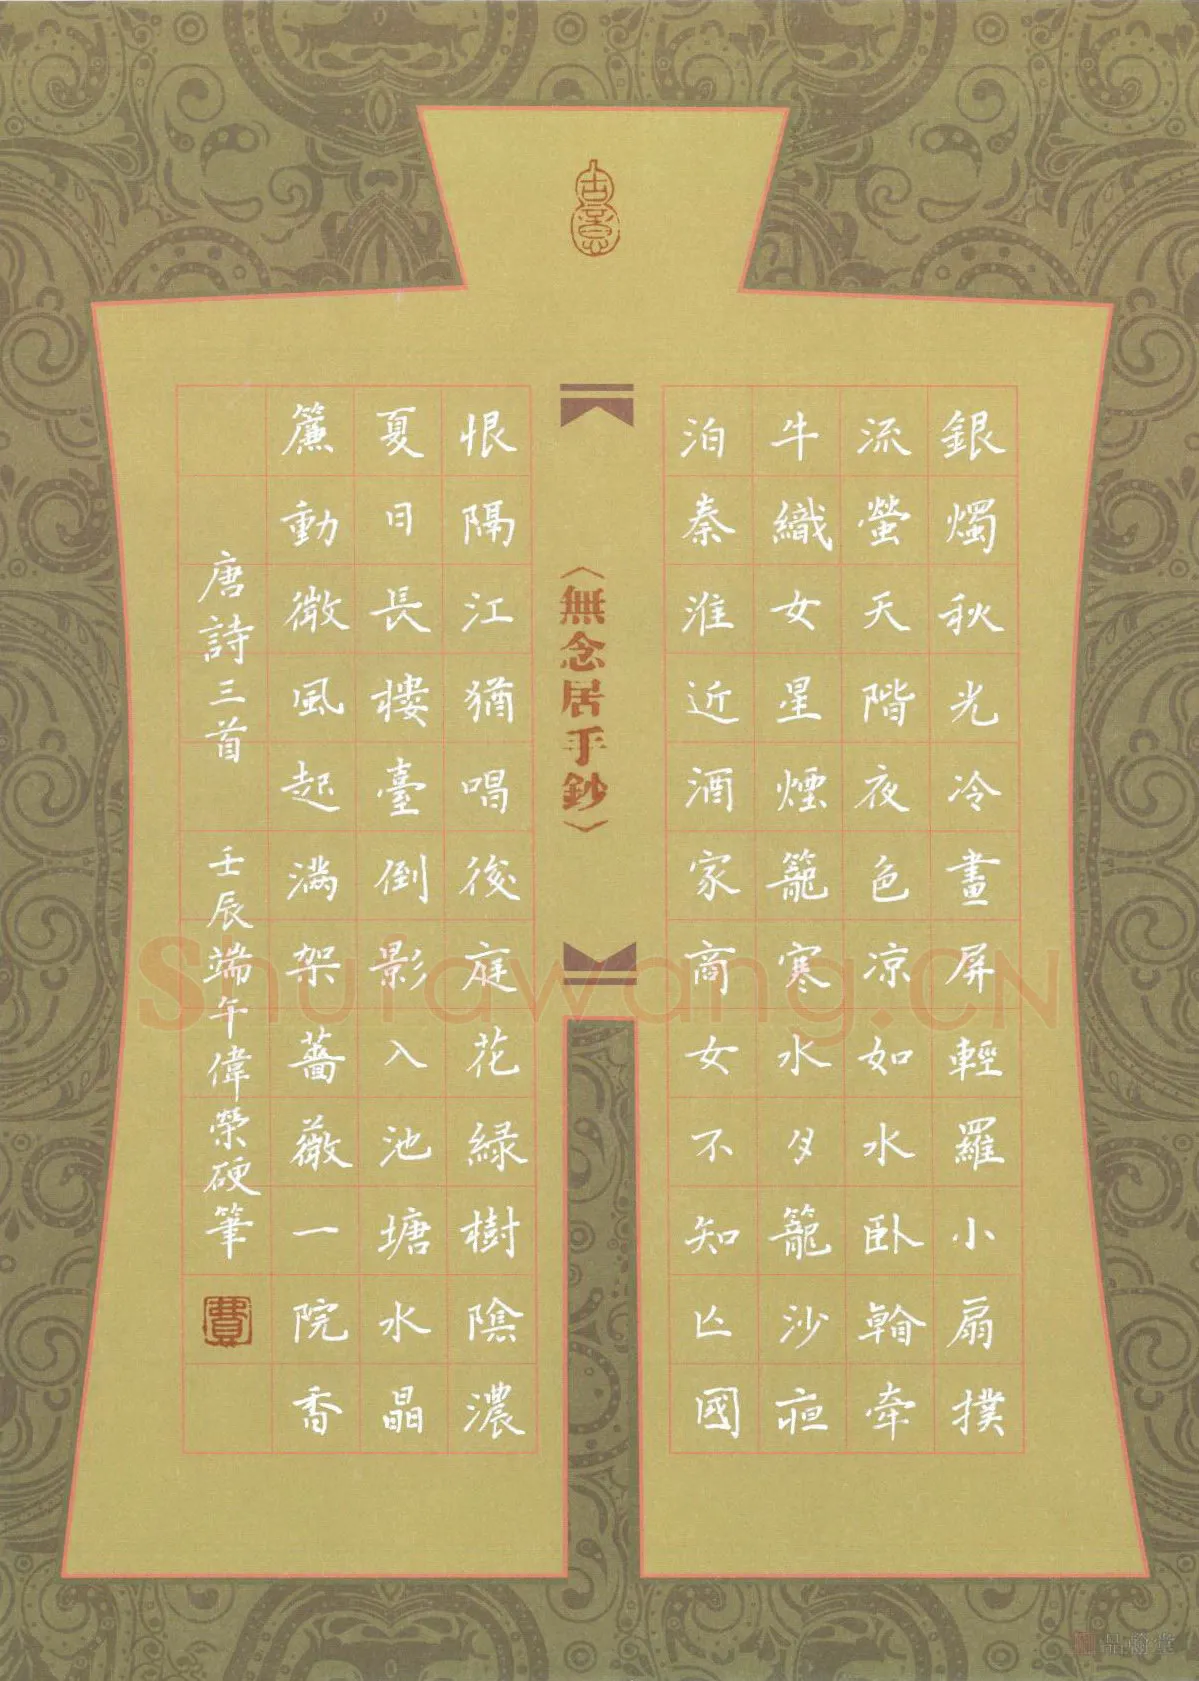 古意
銀燭秋光冷畫屏輕羅小扇撲
流螢天階夜色凉如水卧看牽
牛織女星煙籠寒水月籠沙亱
泊秦淮近酒家商女不知亾國
〈無念居手鈔〉
恨隔江猶唱後庭花緑樹陰濃
夏日長樓臺倒影入池塘水晶
簾動微風起滿架薔薇一院香
唐詩三首 壬辰端午偉榮硬筆
費
Shufawang.CN
品翰堂